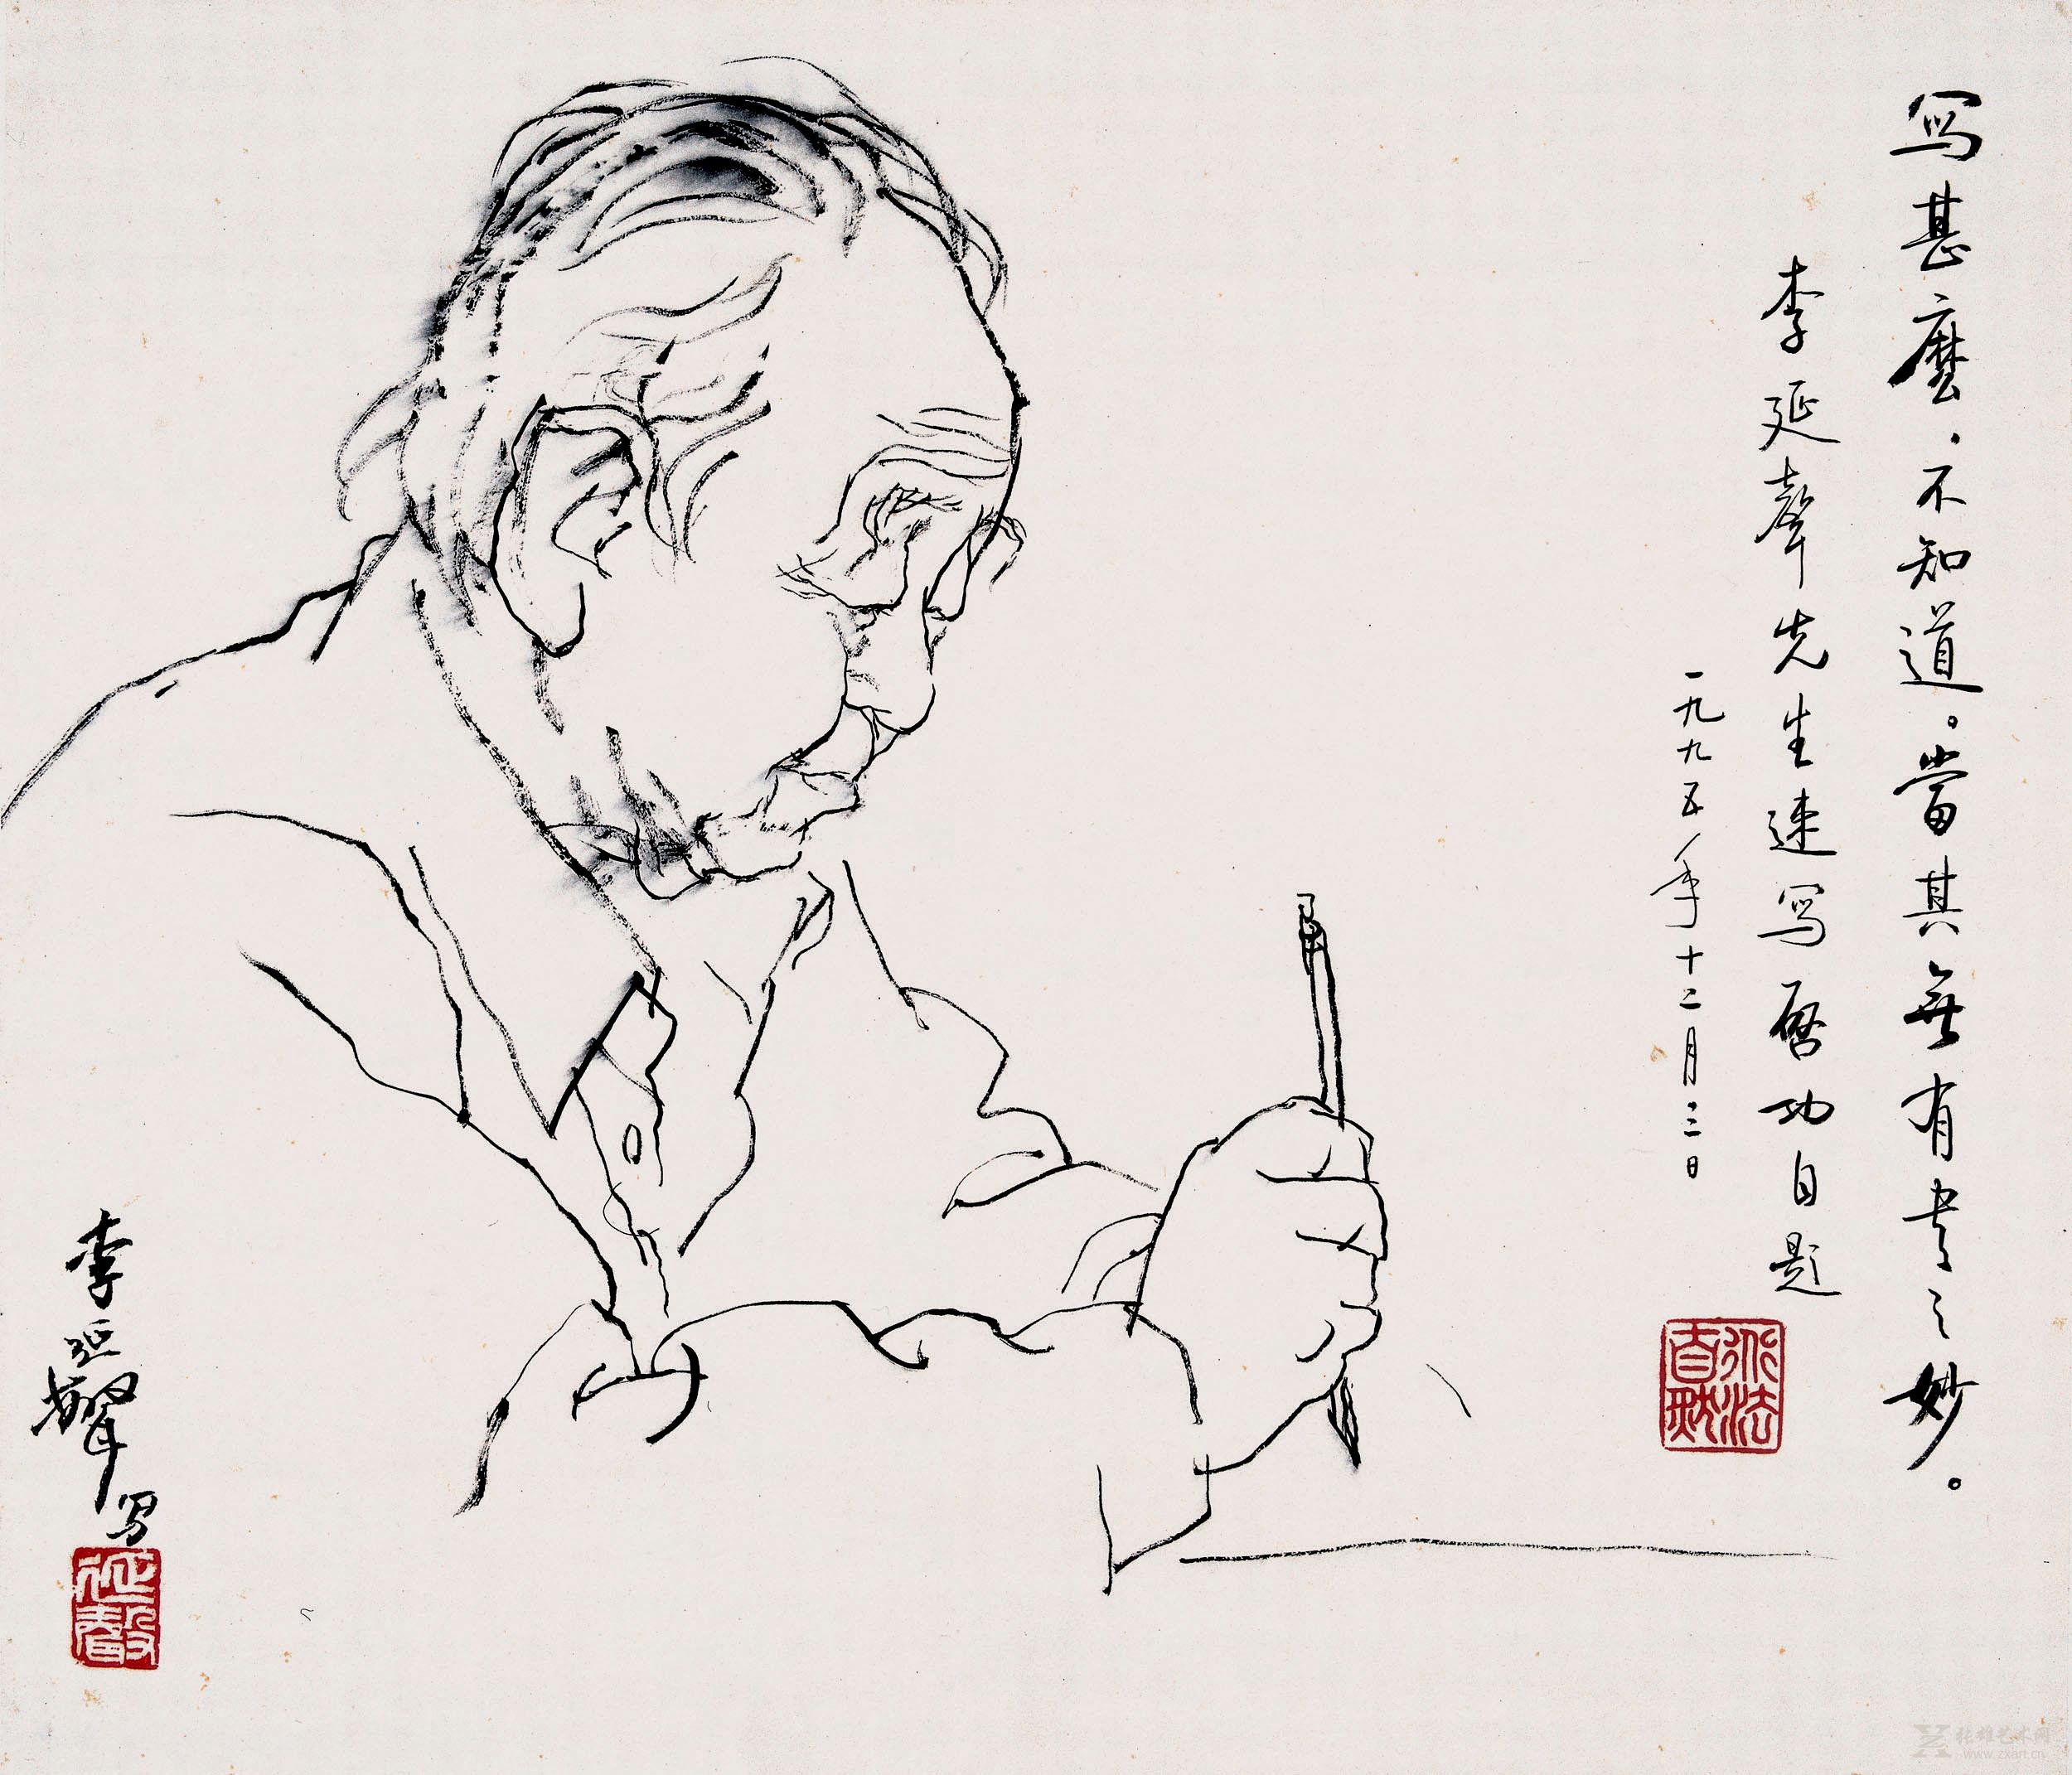 写甚麽，不知道。當其無有書之妙。
李延聲先生速写启功自题
一九九五年十二月三日
李延聲写
延聲
www.zxart.cn